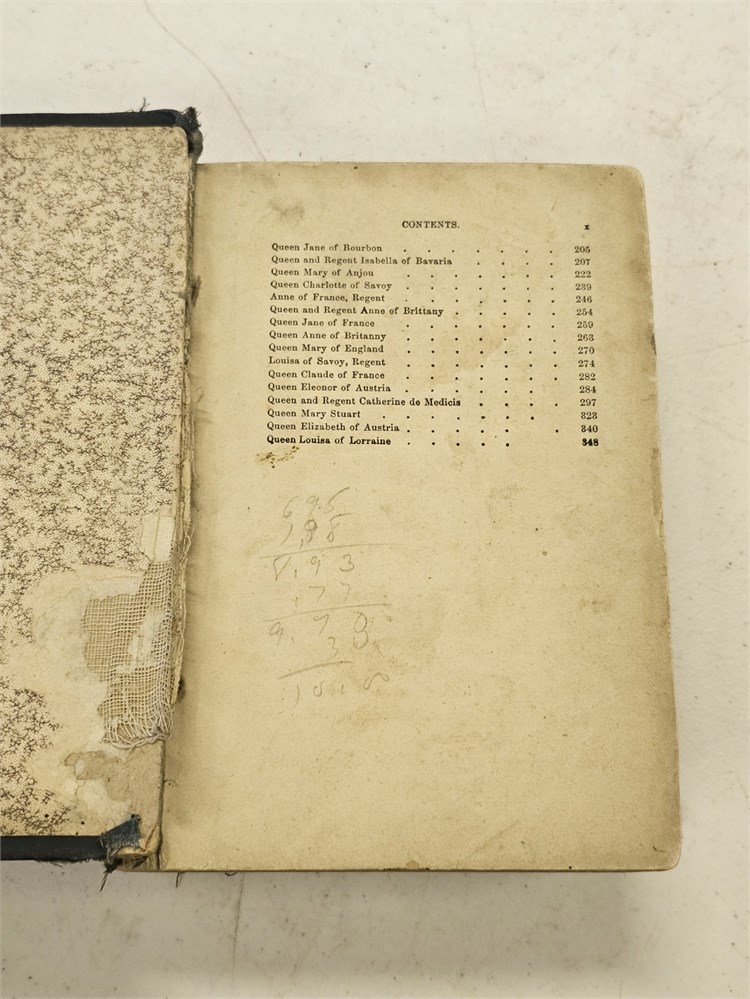 CONTENTS. x
Queen Jane of Bourbon . . . . . . . 205
Queen and Regent Isabella of Bavaria . . . . 207
Queen Mary of Anjou . . . . . . . 222
Queen Charlotte of Savoy . . . . . . . 239
Anne of France, Regent . . . . . . . 246
Queen and Regent Anne of Brittany . . . . . 254
Queen Jane of France . . . . . . . 259
Queen Anne of Britanny . . . . . . . 263
Queen Mary of England . . . . . . . 270
Louisa of Savoy, Regent . . . . . . . 274
Queen Claude of France . . . . . . . 282
Queen Eleonor of Austria . . . . . . . 284
Queen and Regent Catherine de Medicis . . . . 297
Queen Mary Stuart . . . . . . . 323
Queen Elizabeth of Austria . . . . . . 340
Queen Louisa of Lorraine . . . . . 348
1,88
8,93
.77
9.70